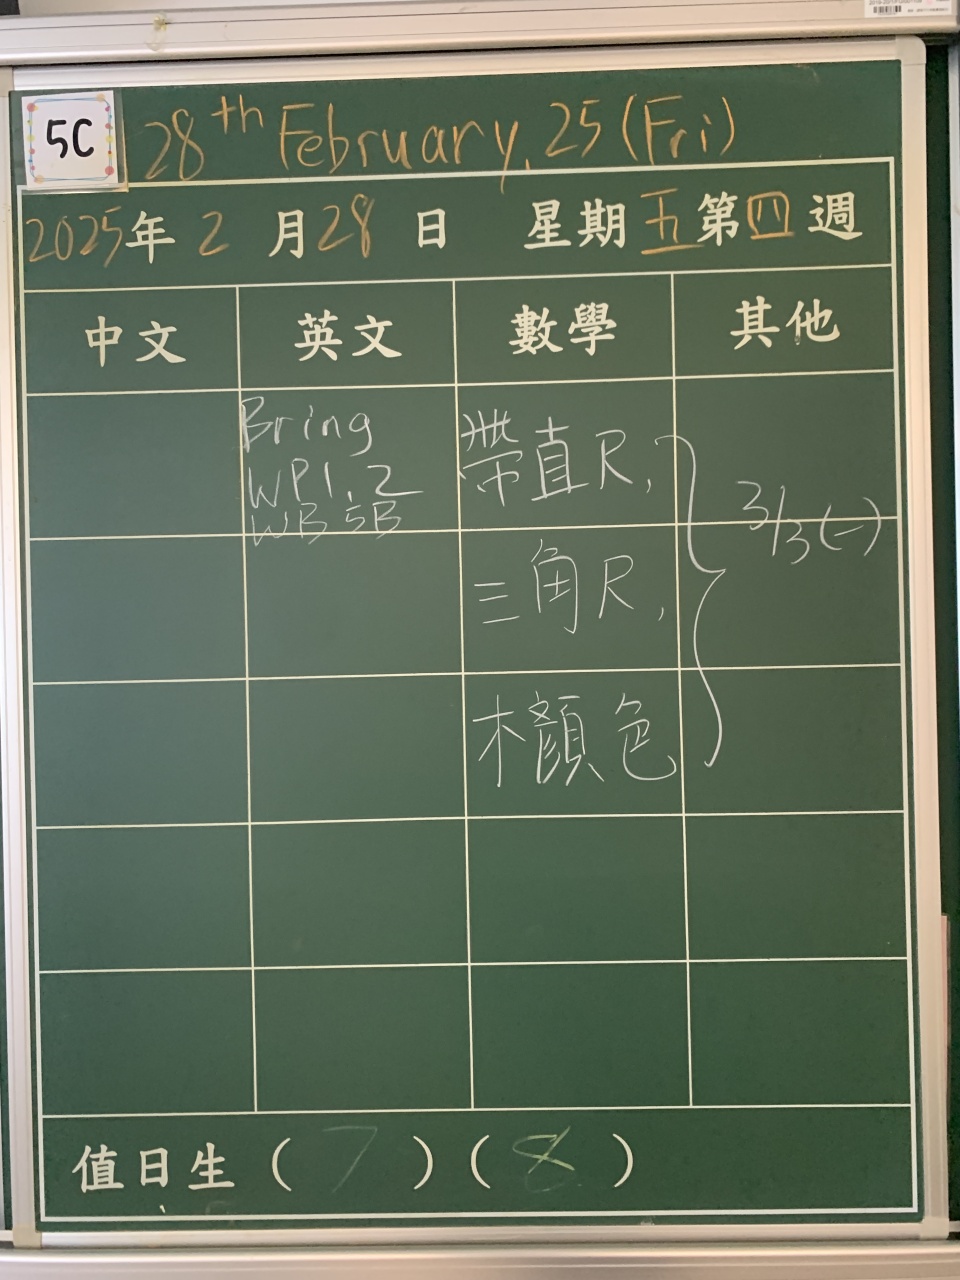 5C
28th February, 25 (Fri)
2025年 2 月 28 日 星期 五 第 四 週
中文 英文 數學 其他
Bring
WP1, 2
WB 5B
帶直R,
三角R,
木顏色
3/3 (一)
值日生 ( 7 ) ( 8 )